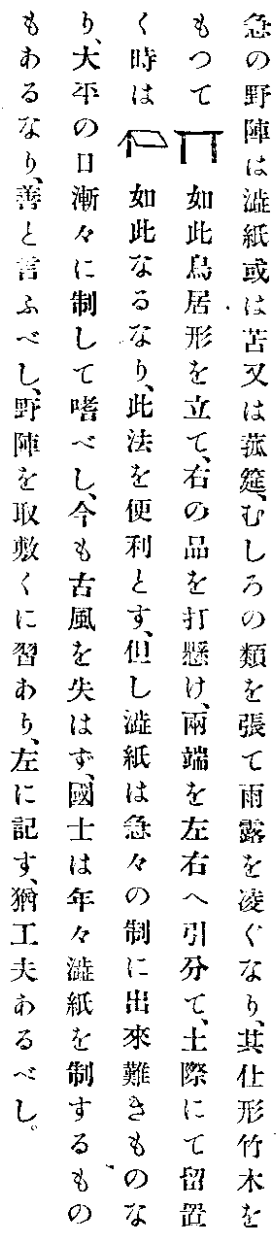 急の野陣は澁紙或は苫又は菰筵、むしろの類を張て雨露を凌ぐなり、其仕形竹木を
もつて如此鳥居形を立て、右の品を打懸け、兩端を左右へ引分て、土際にて留置
く時は如此なるなり、此法を便利とす、但し澁紙は急々の制に出來難きものな
り、大平の日漸々に制して嗜べし、今も古風を失はず、國士は年々澁紙を制するもの
もあるなり、善と言ふべし、野陣を取敷くに習あり、左に記す、猶工夫あるべし。